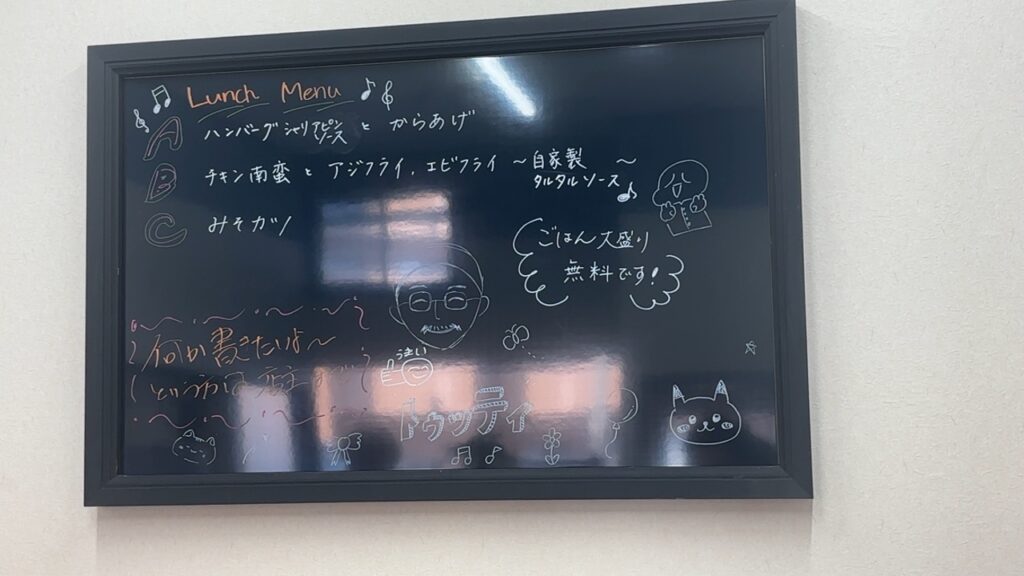 Lunch Menu
A ハンバーグ シャリアピンソース と からあげ
B チキン南蛮 と アジフライ, エビフライ 〜自家製タルタルソース〜
C みそカツ
ごはん大盛り
無料です!
何か書きたいよ〜
という方は 店主まで
うまい
トゥッティ